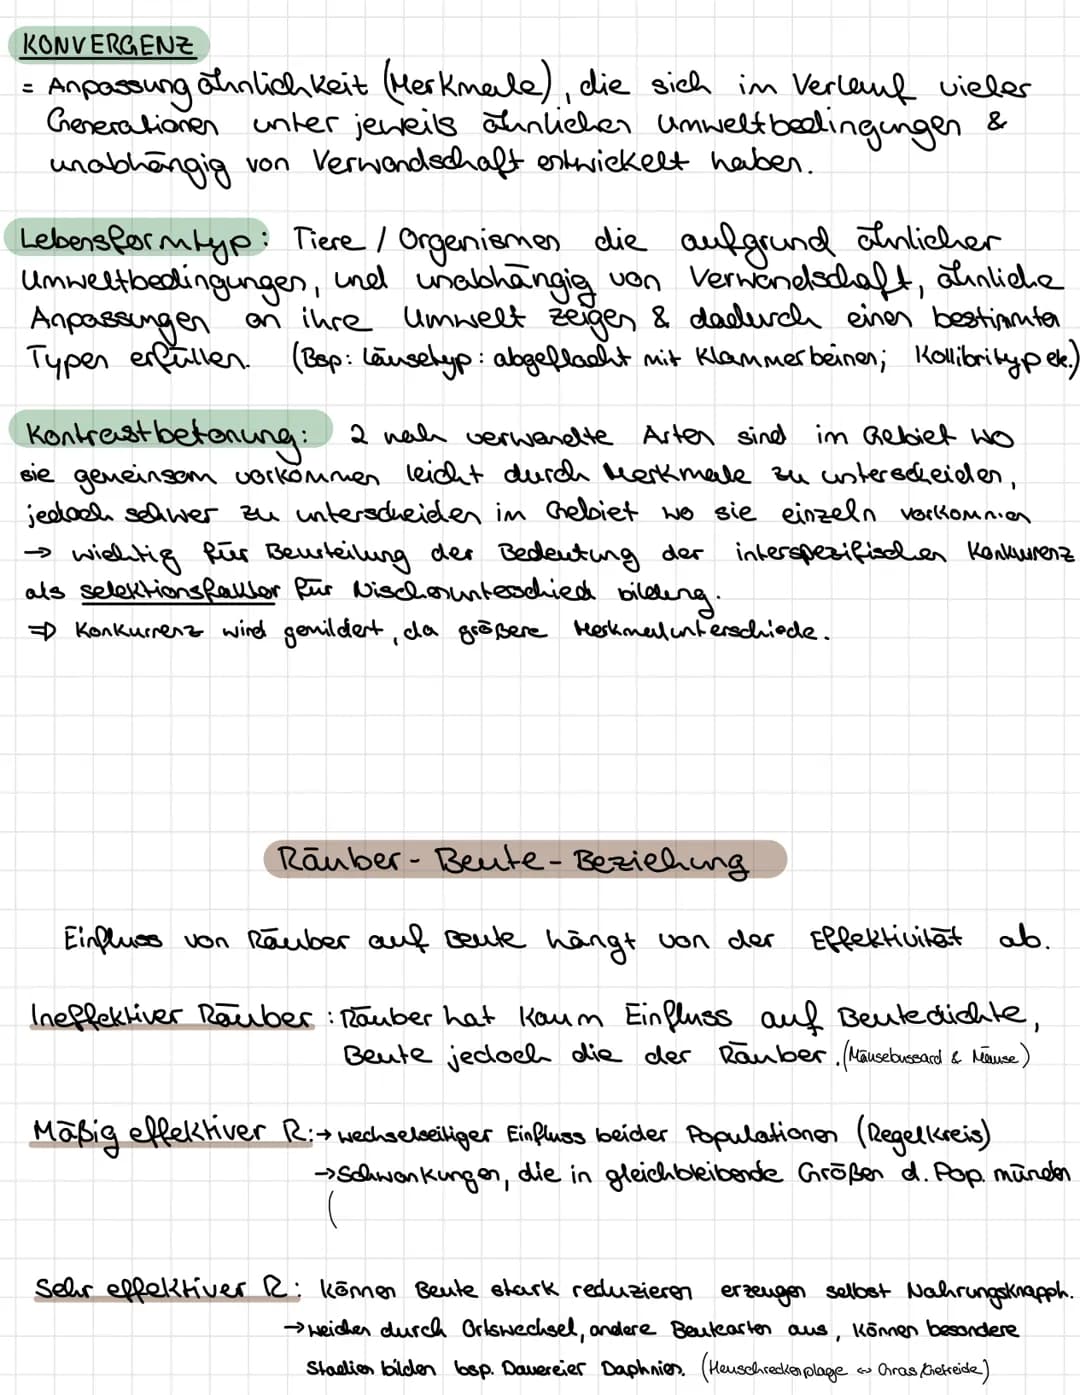 KONVERGENZ
= Anpassungähnlichkeit (Merkmale), die sich im Verlauf vieler
Generationen unter jeweils ähnlichen Umweltbedingungen &
unabhängig von Verwandschaft entwickelt haben.
Lebensformtyp: Tiere / Organismen die aufgrund ähnlicher
Umweltbedingungen, und unabhängig von Verwandschaft, ähnliche
Anpassungen an ihre Umwelt zeigen & dadurch einen bestimmten
Typen erfüllen. (Bsp: Läusetyp: abgeflacht mit Klammerbeinen; Kolibrityp etc.)
Kontrastbetonung: 2 nah verwandte Arten sind im Gebiet wo
sie gemeinsam vorkommen leicht durch Merkmale zu unterscheiden,
jedoch schwer zu unterscheiden im Gebiet wo sie einzeln vorkommen
→ wichtig für Beurteilung der Bedeutung der interspezifischen Konkurrenz
als selektionsfaktor für Nischenunterschied bildung.
⇒ Konkurrenz wird gemildert, da größere Merkmalunterschiede.
Räuber - Beute - Beziehung
Einfluss von Räuber auf Beute hängt von der Effektivität ab.
Ineffektiver Räuber : Räuber hat kaum Einfluss auf Beutedichte,
Beute jedoch die der Räuber. (Mäusebussard & Mäuse)
Mäßig effektiver R.:→ wechselseitiger Einfluss beider Populationen (Regelkreis)
→Schwankungen, die in gleichbleibende Größen d. Pop. münden
(
Sehr effektiver R.: können Beute stark reduzieren erzeugen selbst Nahrungsknapph.
→weichen durch Ortswechsel, andere Beutearten aus, können besondere
Stadien bilden bsp. Dauereier Daphnien. (Heuschreckenplage ↔ Gras/Getreide)